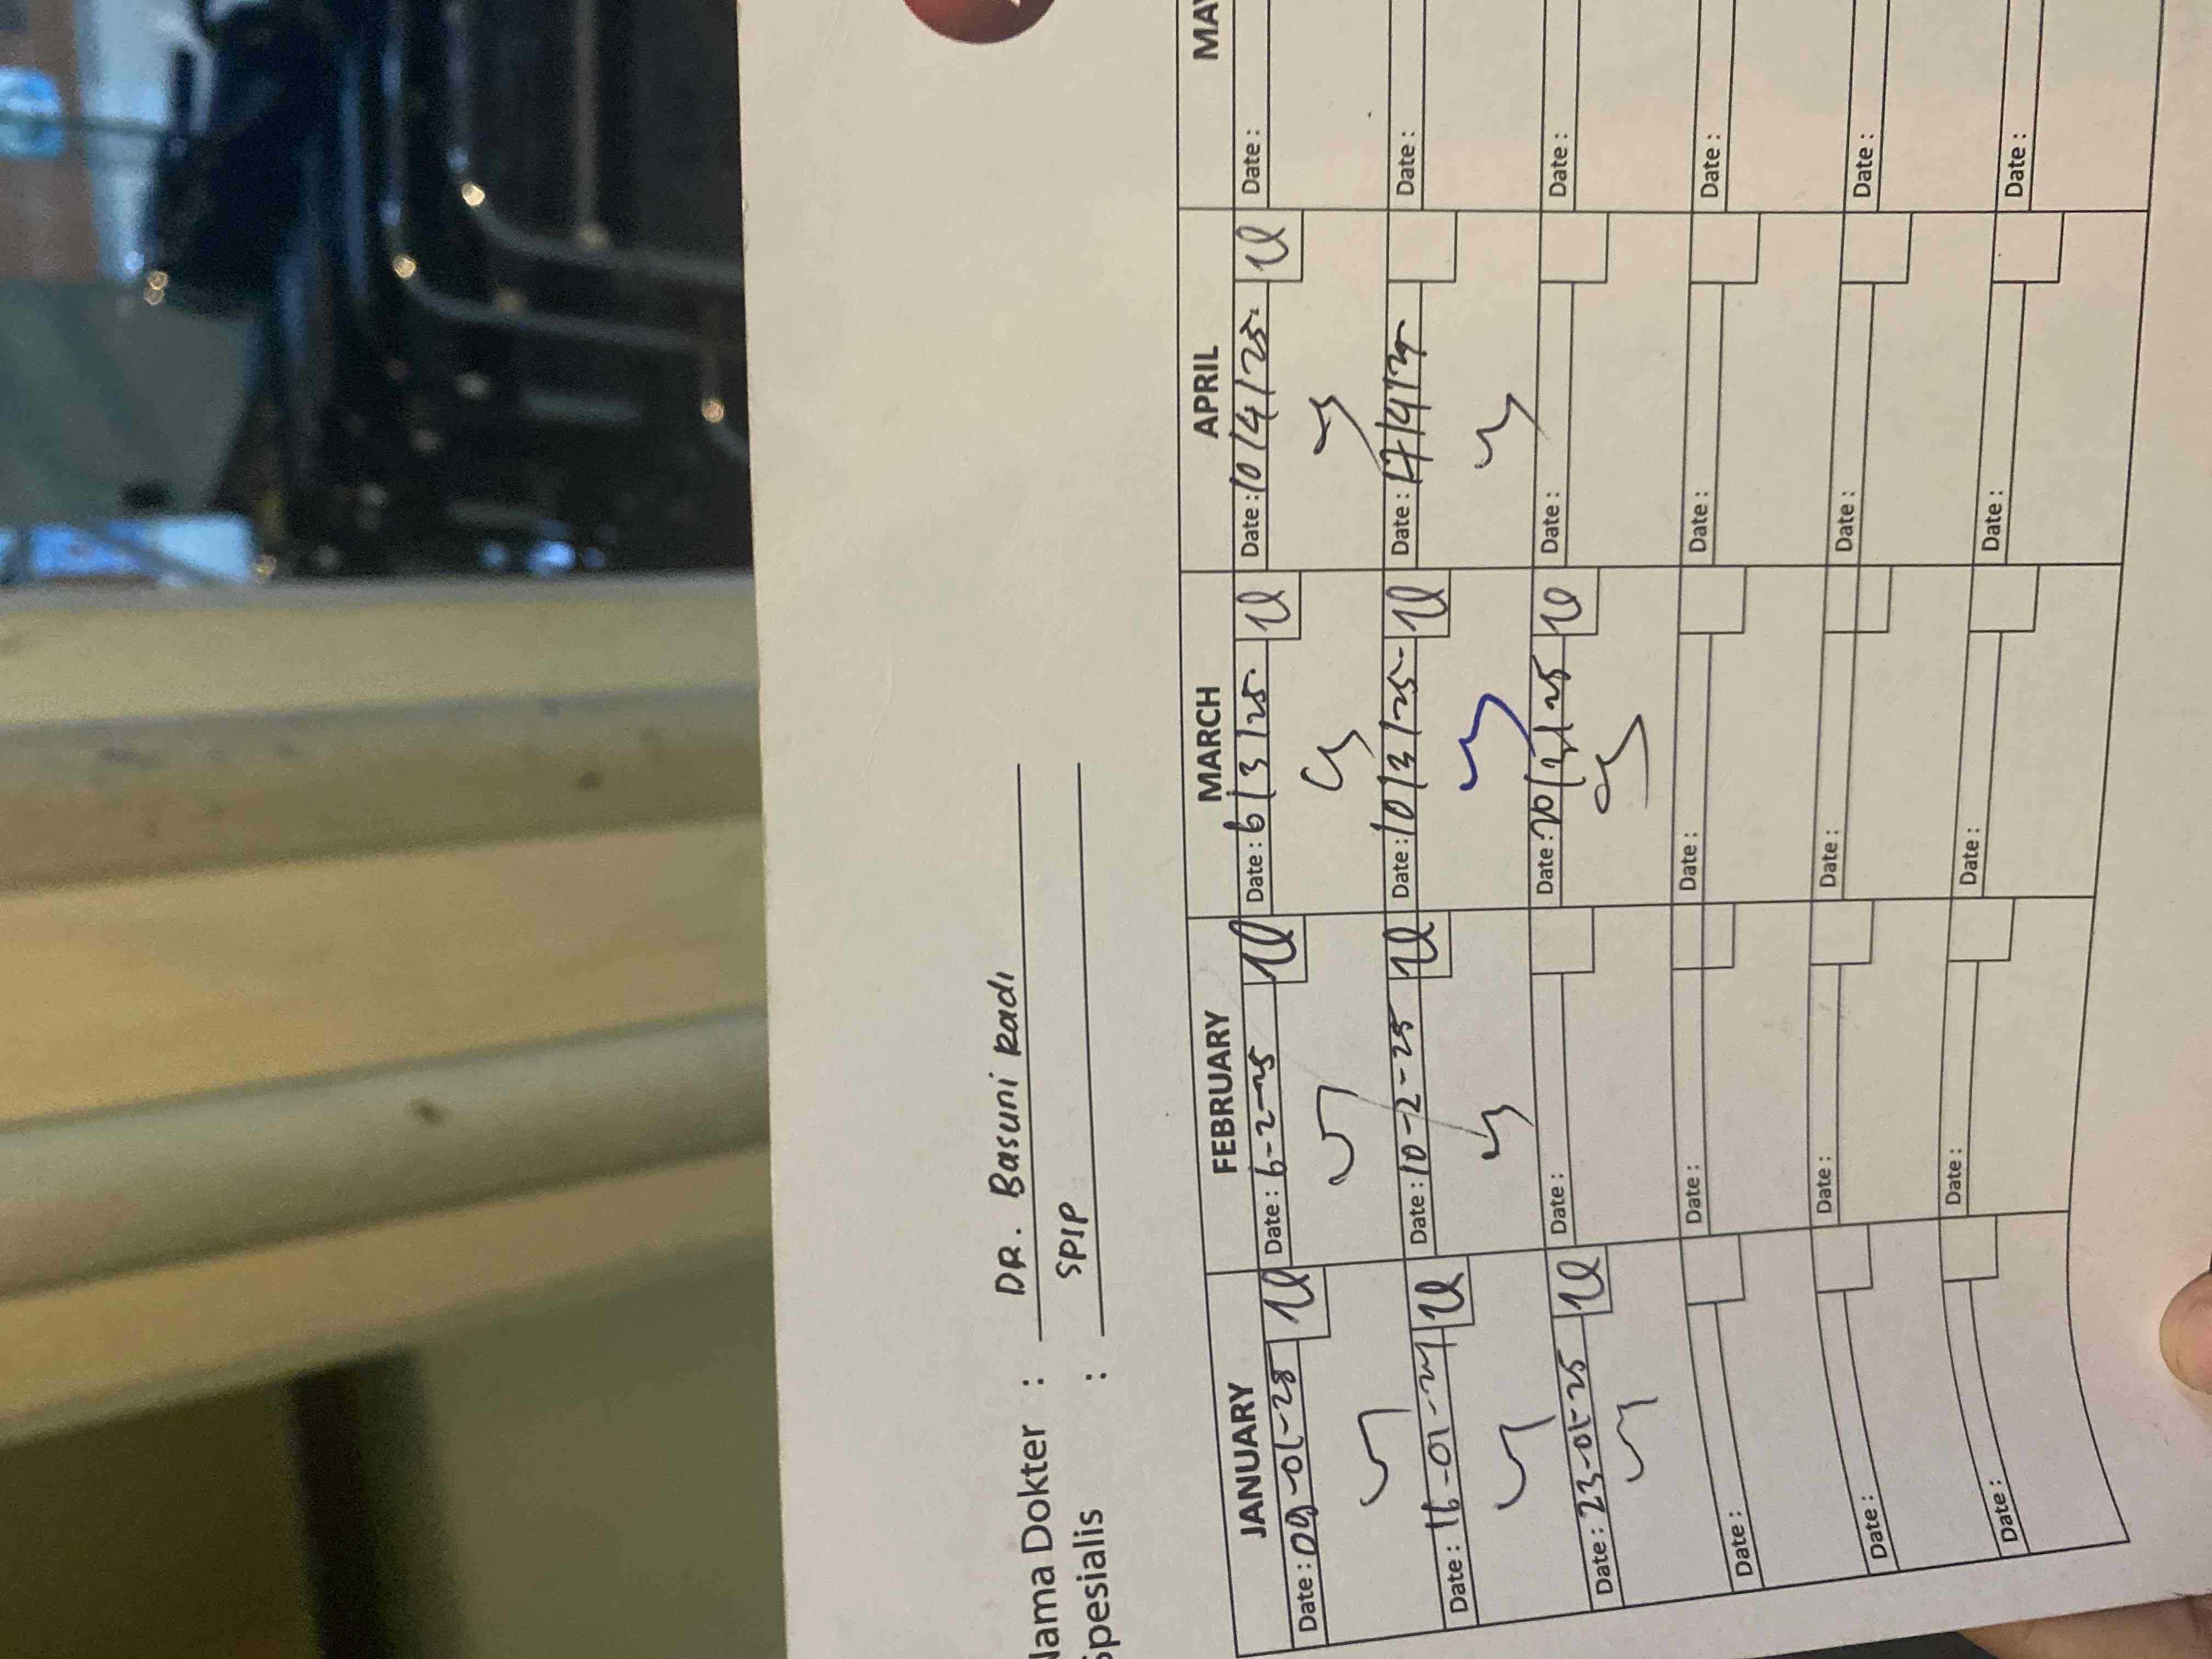 Nama Dokter : DR. Basuni Radi
Spesialis : SPIP
JANUARY FEBRUARY MARCH APRIL
Date : 09-01-25 Date : 6-2-25 Date : 6/3/25 Date : 10/4/25 Date :
Date : 16-01- Date : 10-2-25 Date : 10/3/25 Date : 17/4/
Date :
Date : 23-01-25 Date : Date : 20/3/25 Date : Date :
Date : Date : Date : Date : Date :
Date : Date : Date : Date : Date :
Date : Date : Date : Date : Date :